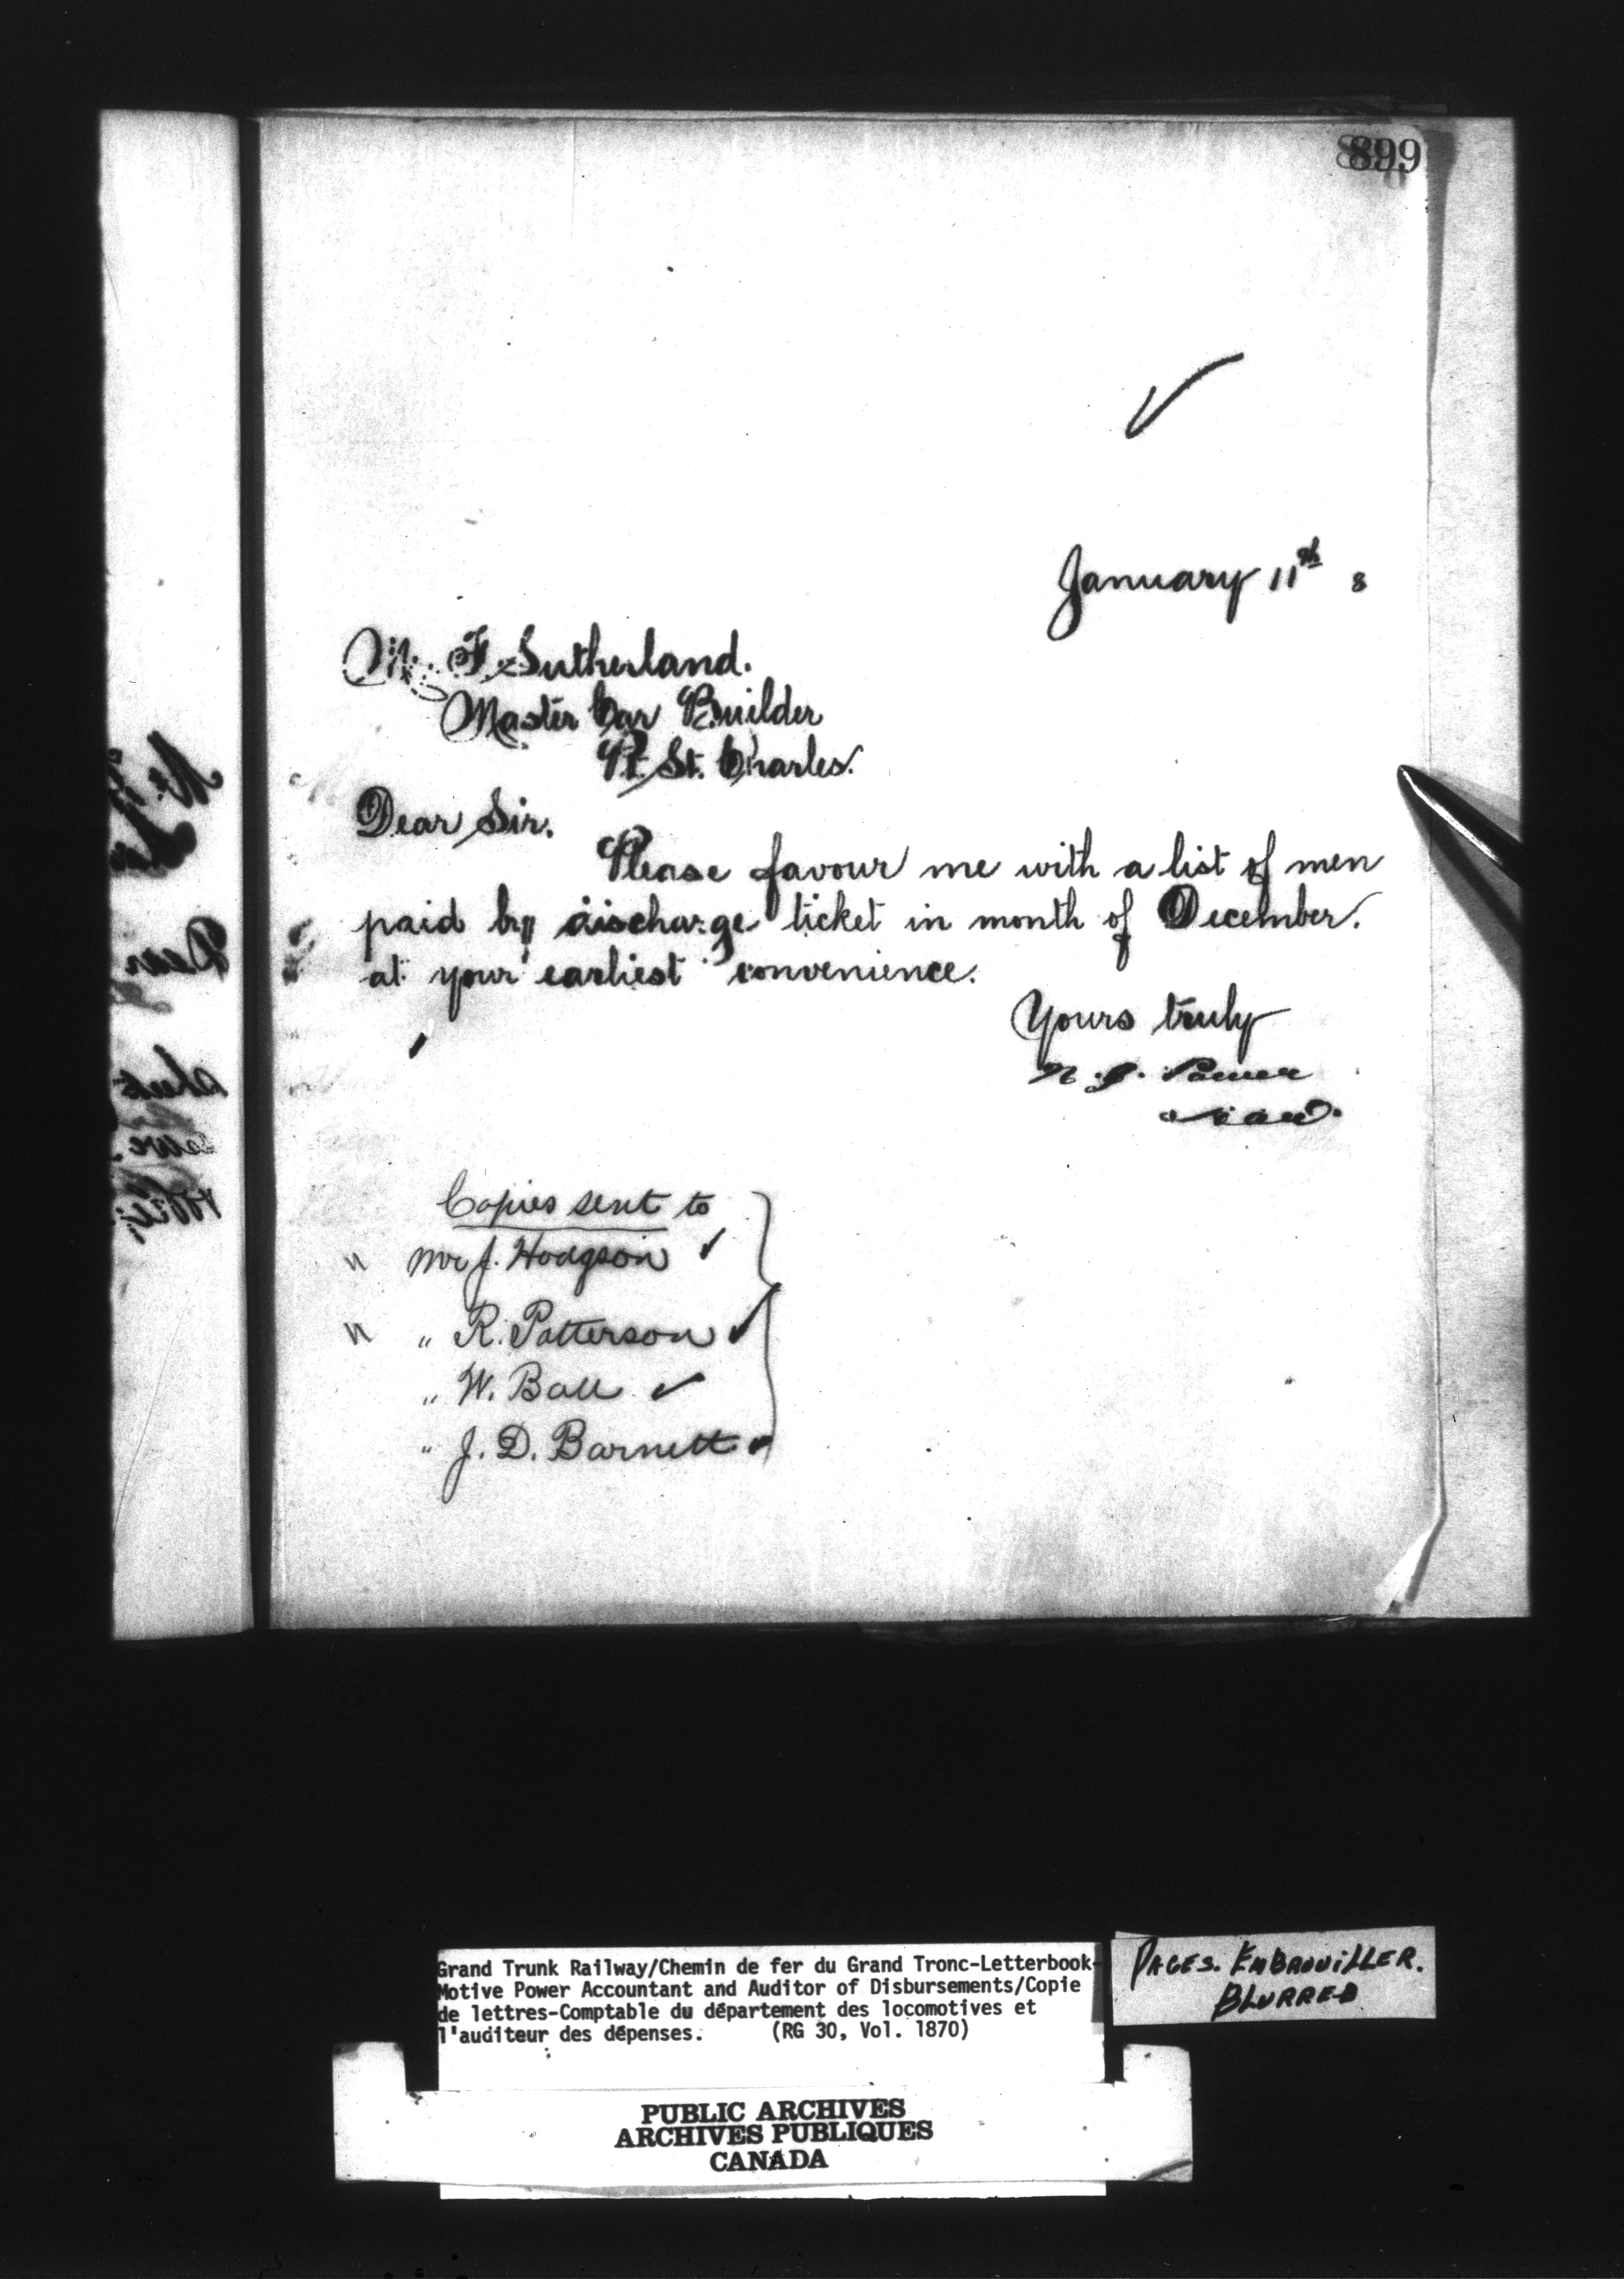 899
January 11th 8
Mr. F. Sutherland.
Master Car Builder
Pt. St. Charles.
Dear Sir.
Please favour me with a list of men
paid by discharge ticket in month of December.
at your earliest convenience.
Yours truly
N. J. Power
Copies sent to
" Mr J. Hodgson ✓
" " R. Patterson ✓
" W. Ball ✓
" J. D. Barnett ✓
Dear
Grand Trunk Railway/Chemin de fer du Grand Tronc-Letterbook-
Motive Power Accountant and Auditor of Disbursements/Copie
de lettres-Comptable du département des locomotives et
l'auditeur des dépenses. (RG 30, Vol. 1870)
PAGES. EMBROUILLER.
BLURRED
PUBLIC ARCHIVES
ARCHIVES PUBLIQUES
CANADA